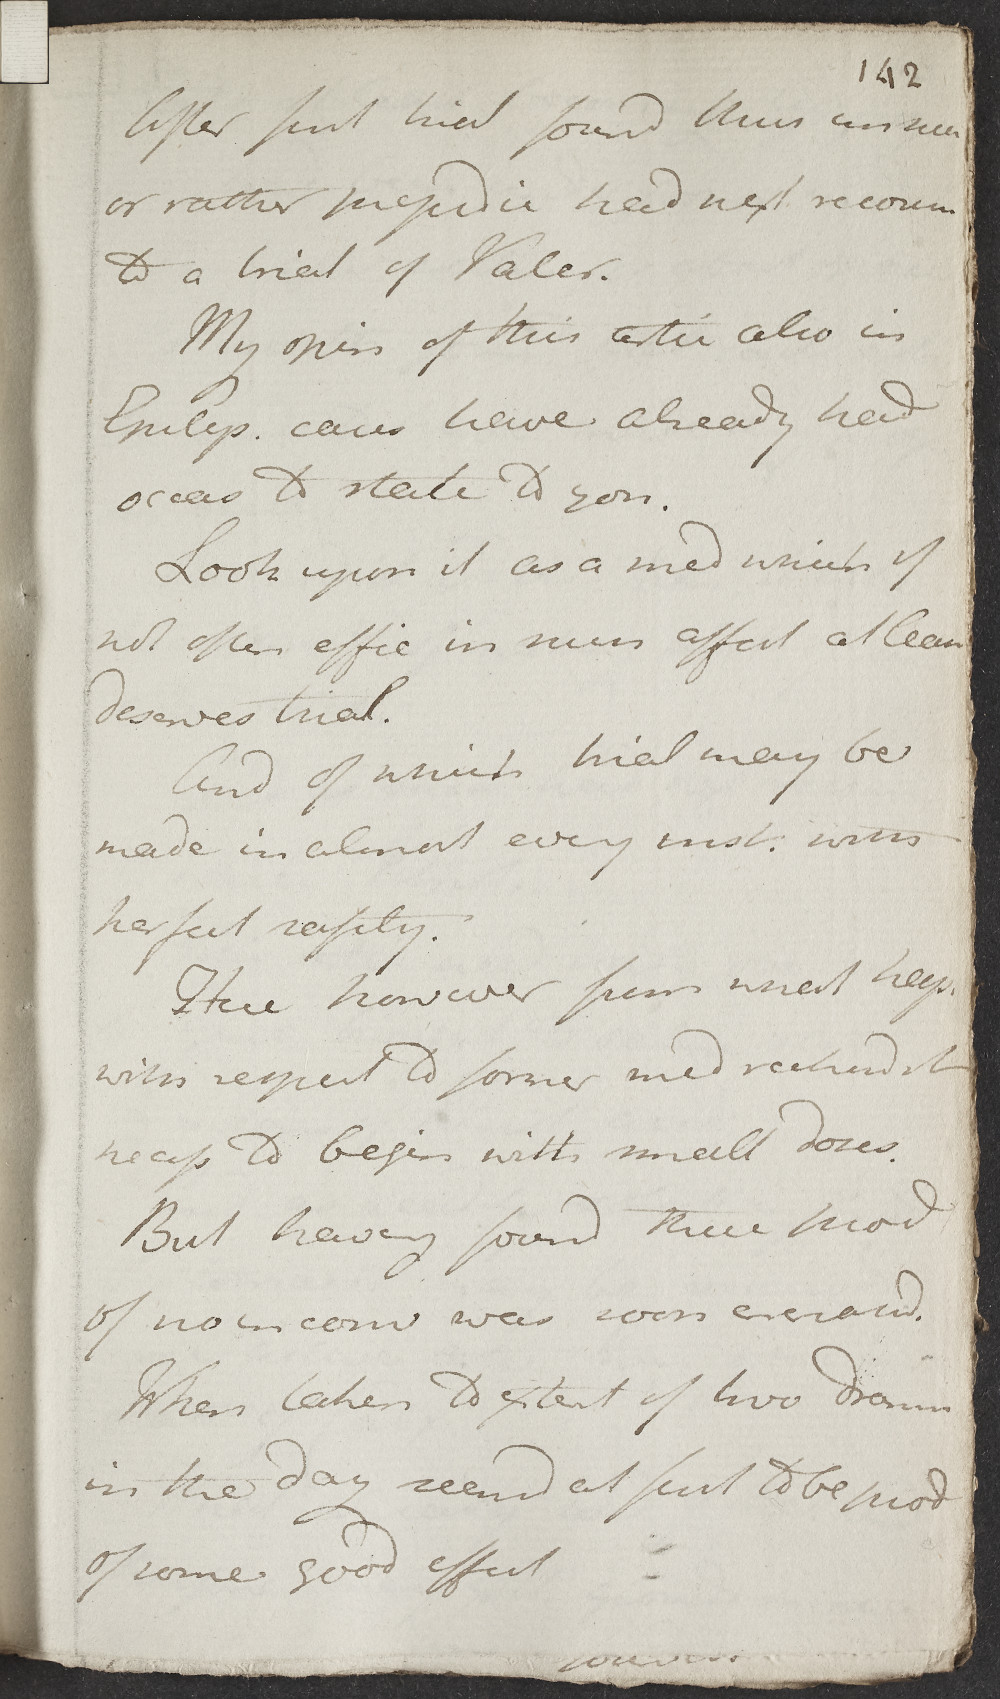 142
After first trial found thus unsucc
or rather prejudic had next recours
to a trial of Valer.
My opin of this artic also in
Epilep. cases have already had
occas to state to you.
Look upon it as a med which if
not often effic in nerv affect at leas
deserves trial.
And of which trial may be
made in almost every inst. with
perfect safety.
Here however from what hap.
with respect to former med it
necess to begin with small doses.
But having found these prod
of no inconv was soon
When taken to extent of two dram
in the day seemd at first to be prod
of some good effect